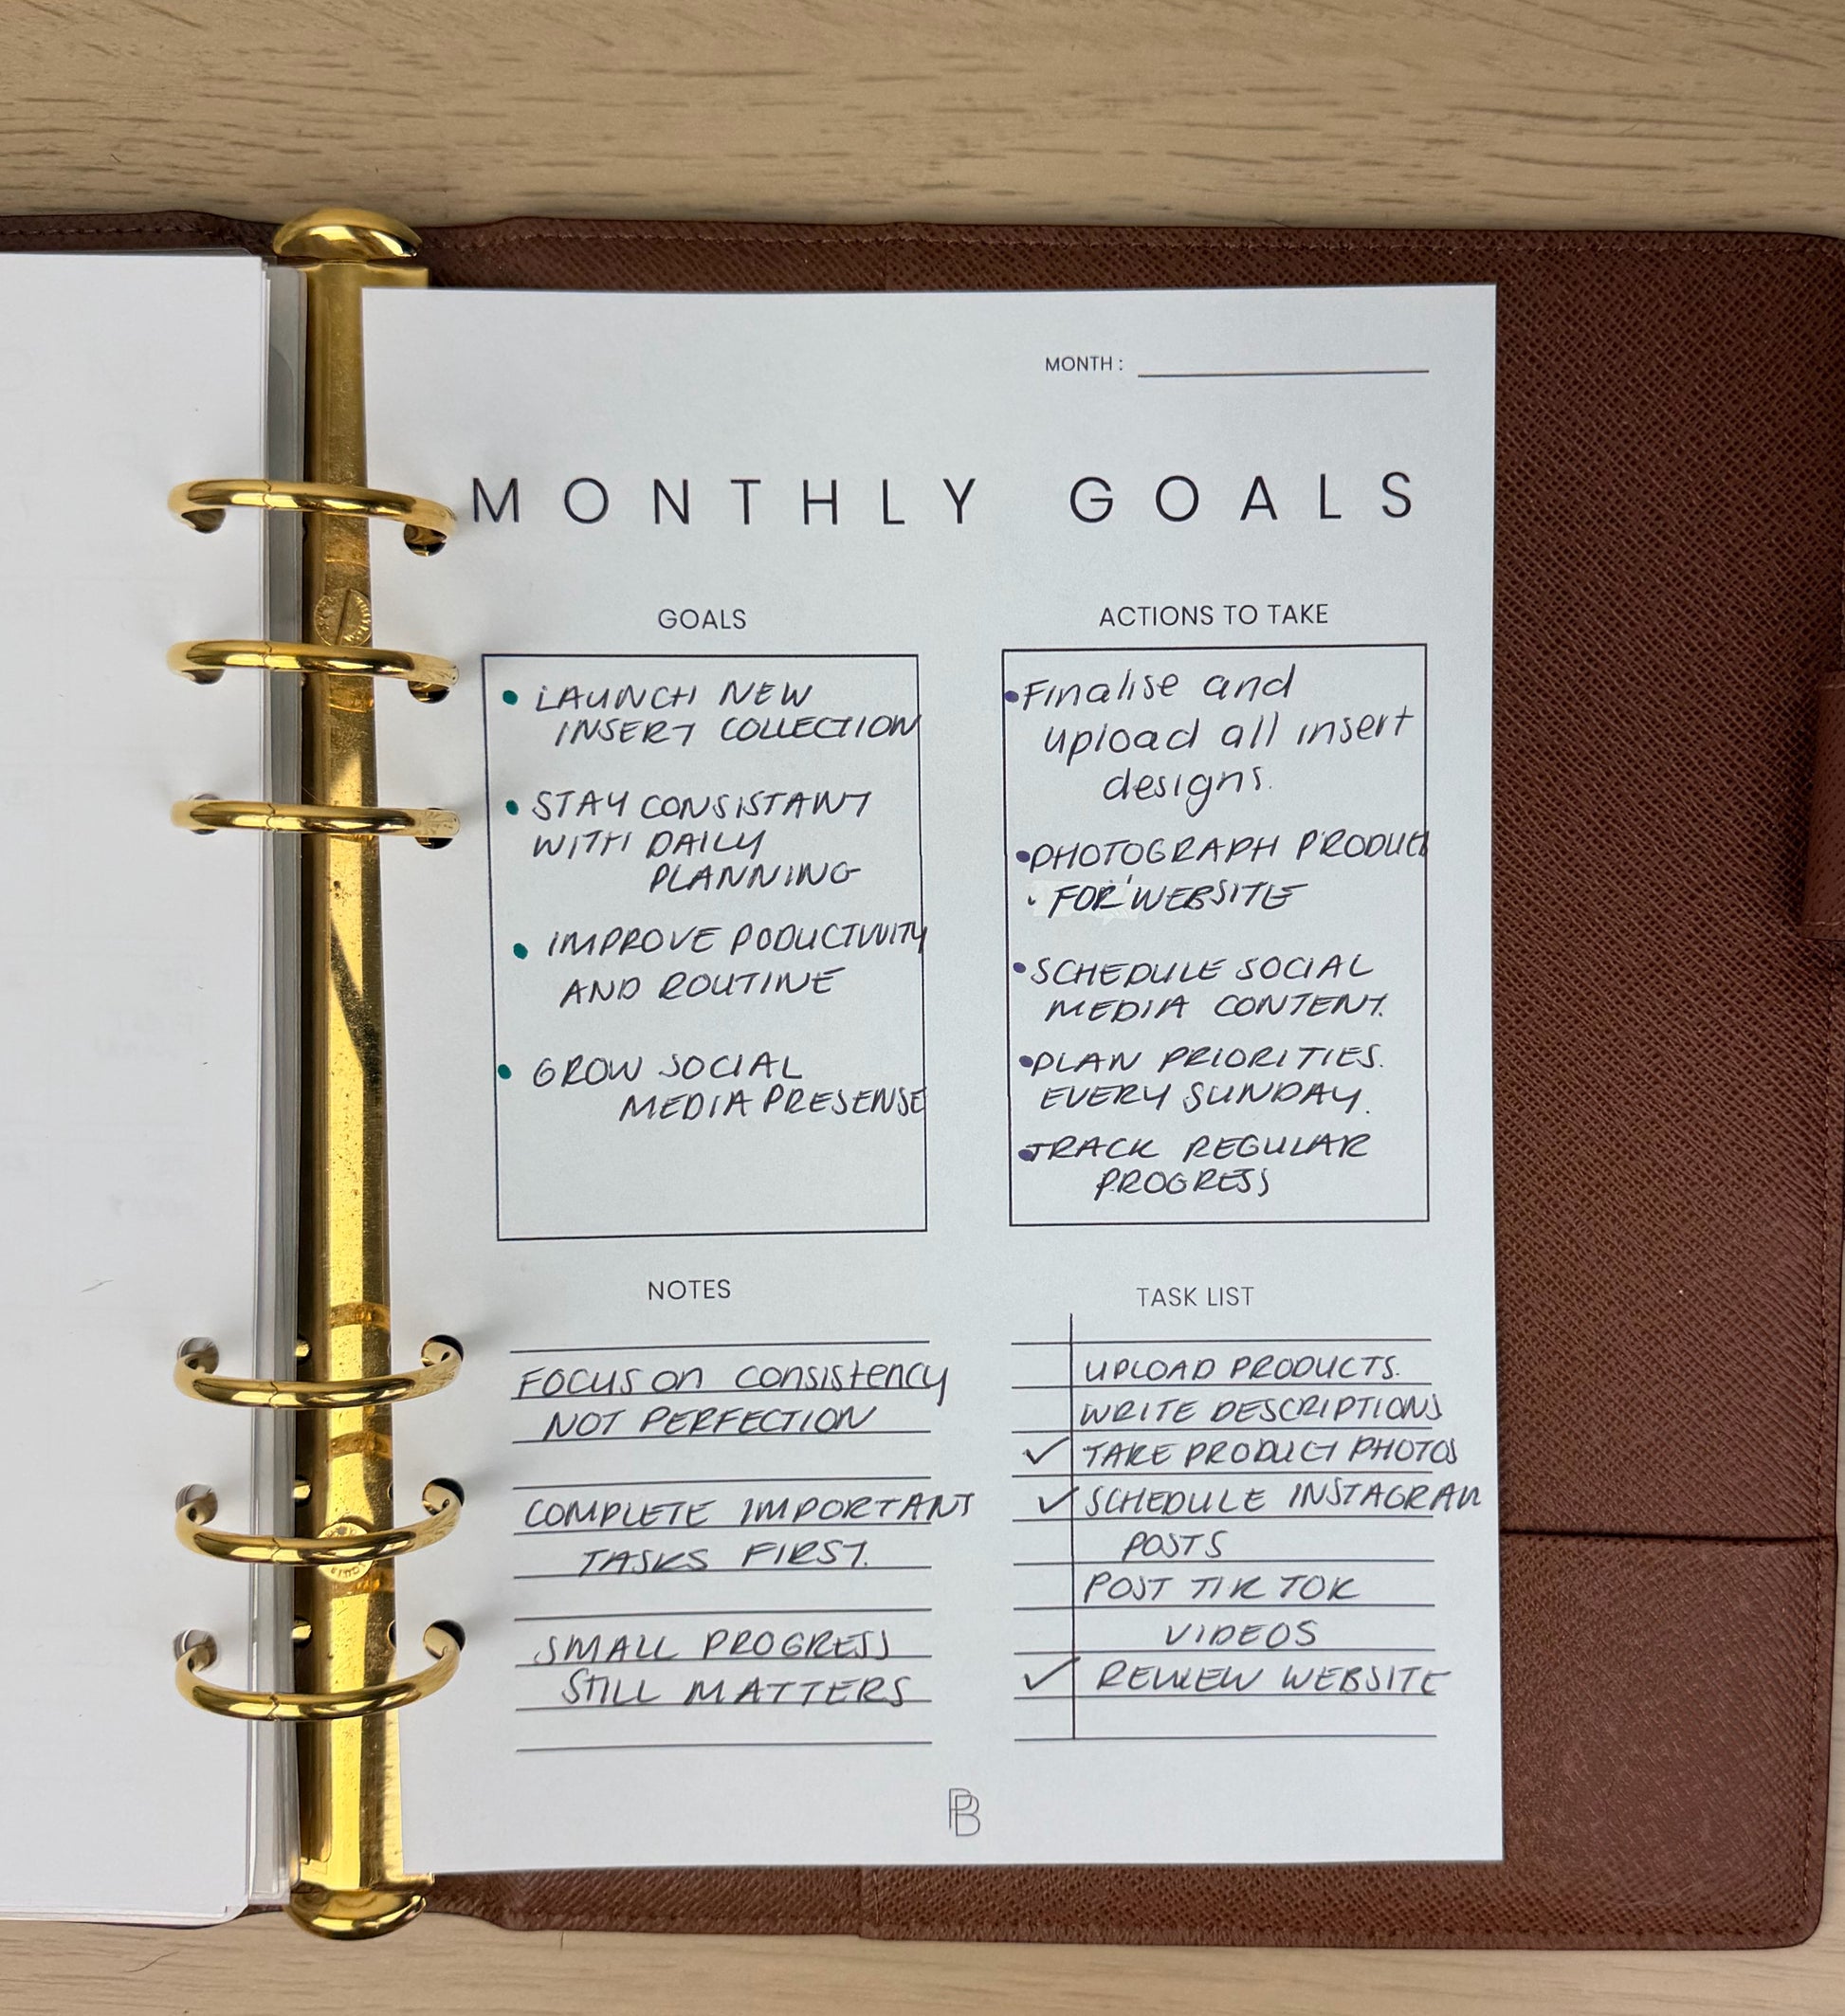 MONTH :
MONTHLY GOALS
GOALS
• LAUNCH NEW
INSERT COLLECTION
• STAY CONSISTANT
WITH DAILY
PLANNING
• IMPROVE PODUCTIVITY
AND ROUTINE
• GROW SOCIAL
MEDIA PRESENSE
ACTIONS TO TAKE
• Finalise and
upload all insert
designs.
• PHOTOGRAPH PRODUCT
FOR WEBSITE
• SCHEDULE SOCIAL
MEDIA CONTENT.
• PLAN PRIORITIES.
EVERY SUNDAY.
• TRACK REGULAR
PROGRESS
NOTES
FOCUS on consistency
NOT PERFECTION
COMPLETE IMPORTANT
TASKS FIRST.
SMALL PROGRESS
STILL MATTERS
TASK LIST
UPLOAD PRODUCTS.
WRITE DESCRIPTIONS
✓ TAKE PRODUCT PHOTOS
✓ SCHEDULE INSTAGRAM
POSTS
POST TIK TOK
VIDEOS
✓ REVIEW WEBSITE
PB